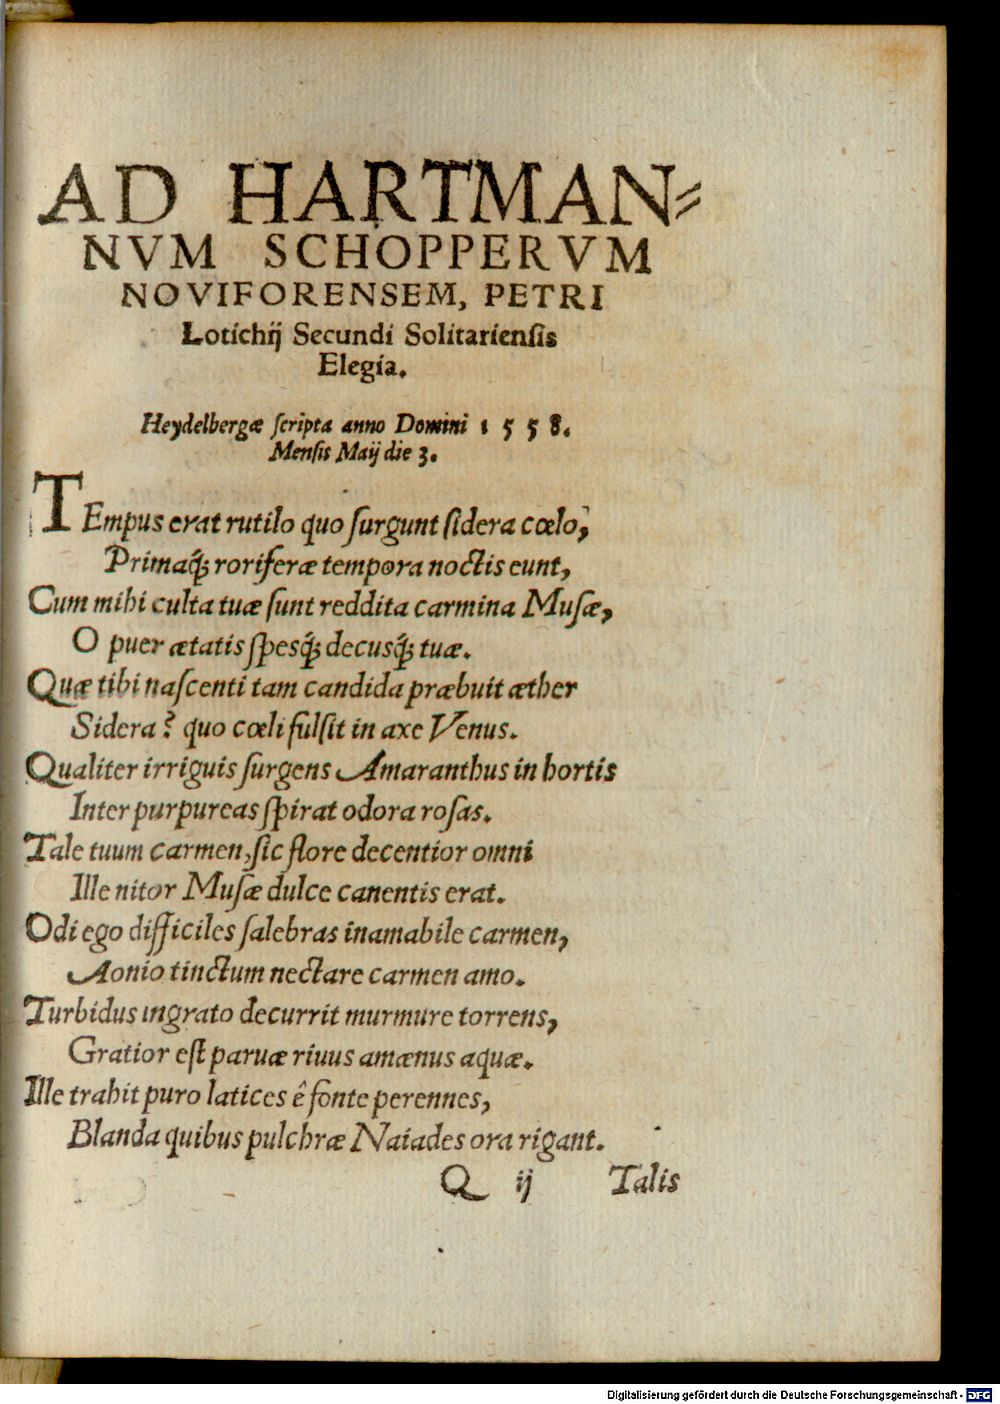 AD HARTMAN⸗
NVM SCHOPPERVM
NOVIFORENSEM, PETRI
Lotichij Secundi Solitarienſis
Elegia.
Heydelbergæ ſcripta anno Domini 1558.
Menſis Maij die 3.
TEmpus erat rutilo quo ſurgunt ſidera cœlo,
Primaq́; roriferæ tempora noctis eunt,
Cum mihi culta tuæ ſunt reddita carmina Muſæ,
O puer ætatis ſpesq́; decusq́; tuæ.
Quæ tibi naſcenti tam candida præbuit æther
Sidera? quo cœli fulſit in axe Venus.
Qualiter irriguis ſurgens Amaranthus in hortis
Inter purpureas ſpirat odora roſas.
Tale tuum carmen, ſic flore decentior omni
Ille nitor Muſæ dulce canentis erat.
Odi ego difficiles ſalebras inamabile carmen,
Aonio tinctum nectare carmen amo.
Turbidus ingrato decurrit murmure torrens,
Gratior eſt paruæ riuus amænus aquæ.
Ille trahit puro latices ê fonte perennes,
Blanda quibus pulchræ Naiades ora rigant.
Q ij Talis
Digitalisierung gefördert durch die Deutsche Forschungsgemeinschaft - DFG